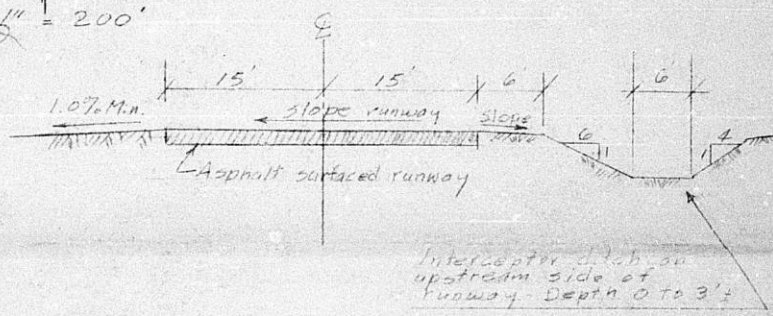 1" = 200'
℄
15' 15' 6' 6'
1.0% Min. slope runway Slope
6 1 1 4
Asphalt surfaced runway
Interceptor ditch on
upstream side of
runway - Depth 0 to 3'±